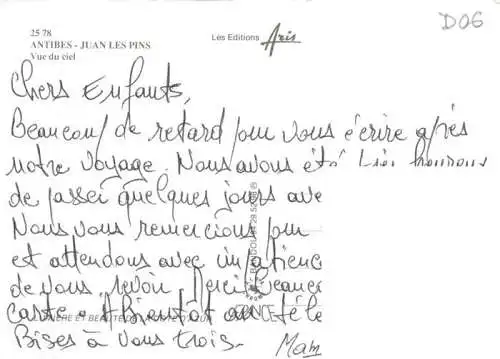 D06
25 78
ANTIBES - JUAN LES PINS
Vue du ciel
Les Editions Aris
Chers Enfants,
Beaucoup de retard pour vous écrire après
notre voyage. Nous avons été bien heureux
de passer quelques jours ave
Nous vous remercions pour
et attendons avec impatience
de vous revoir. Merci beauc
carte. A bientôt
Bises à vous trois.
Mam